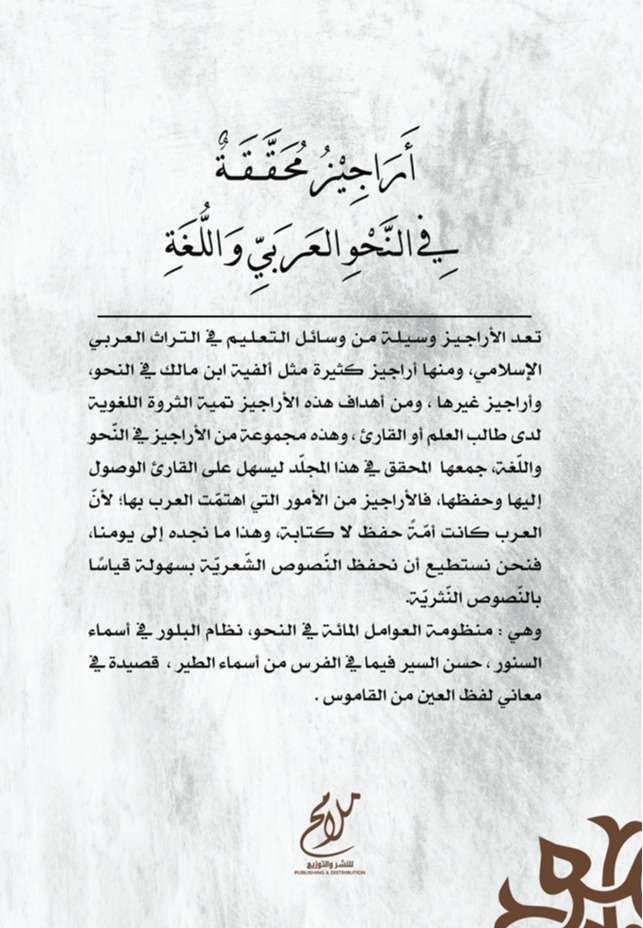 أَرَاجِيْزُ مُحَقَّقَةٌ
فِي النَّحْوِ العَرَبِيِّ وَاللُّغَةِ
تعد الأراجيز وسيلة من وسائل التعليم في التراث العربي
الإسلامي، ومنها أراجيز كثيرة مثل ألفية ابن مالك في النحو،
وأراجيز غيرها ، ومن أهداف هذه الأراجيز تمية الثروة اللغوية
لدى طالب العلم أو القارئ ، وهذه مجموعة من الأراجيز في النّحو
واللّغة، جمعها المحقق في هذا المجلّد ليسهل على القارئ الوصول
إليها وحفظها، فالأراجيز من الأمور التي اهتمّت العرب بها؛ لأنّ
العرب كانت أمّةً حفظ لا كتابة، وهذا ما نجده إلى يومنا،
فنحن نستطيع أن نحفظ النّصوص الشّعريّة بسهولة قياسًا
بالنّصوص النّثريّة.
وهي : منظومة العوامل المائة في النحو، نظام البلور في أسماء
السنور ، حسن السير فيما في الفرس من أسماء الطير ، قصيدة في
معاني لفظ العين من القاموس .
ملامح
للنشر والتوزيع
PUBLISHING & DISTRIBUTION